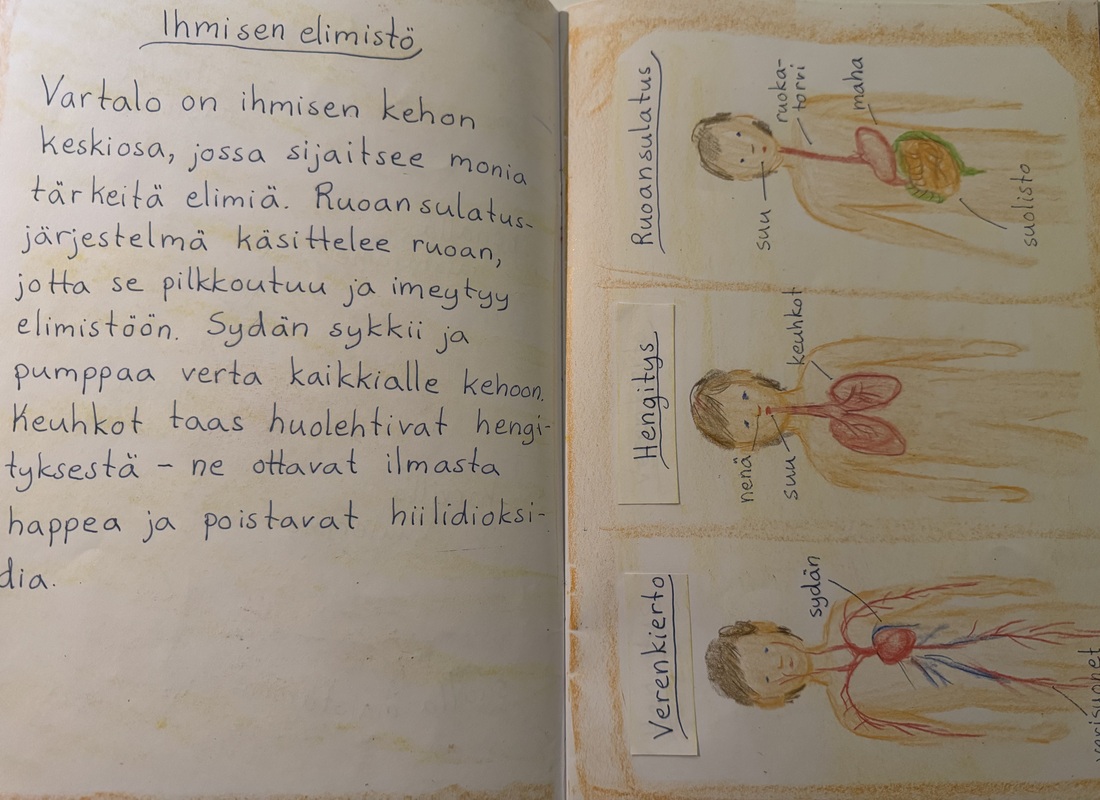 Ihmisen elimistö
Vartalo on ihmisen kehon
keskiosa, jossa sijaitsee monia
tärkeitä elimiä. Ruoansulatus-
järjestelmä käsittelee ruoan,
jotta se pilkkoutuu ja imeytyy
elimistöön. Sydän sykkii ja
pumppaa verta kaikkialle kehoon.
Keuhkot taas huolehtivat hengi-
tyksestä – ne ottavat ilmasta
happea ja poistavat hiilidioksi-
dia.
Verenkierto
sydän
Hengitys
nenä
suu
keuhkot
Ruoansulatus
suu
ruoka-
torvi
maha
suolisto